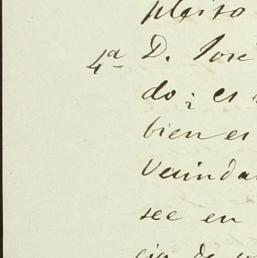 pleito
4ª D. José
do; es
bien es
Vecinda
see en
cia de